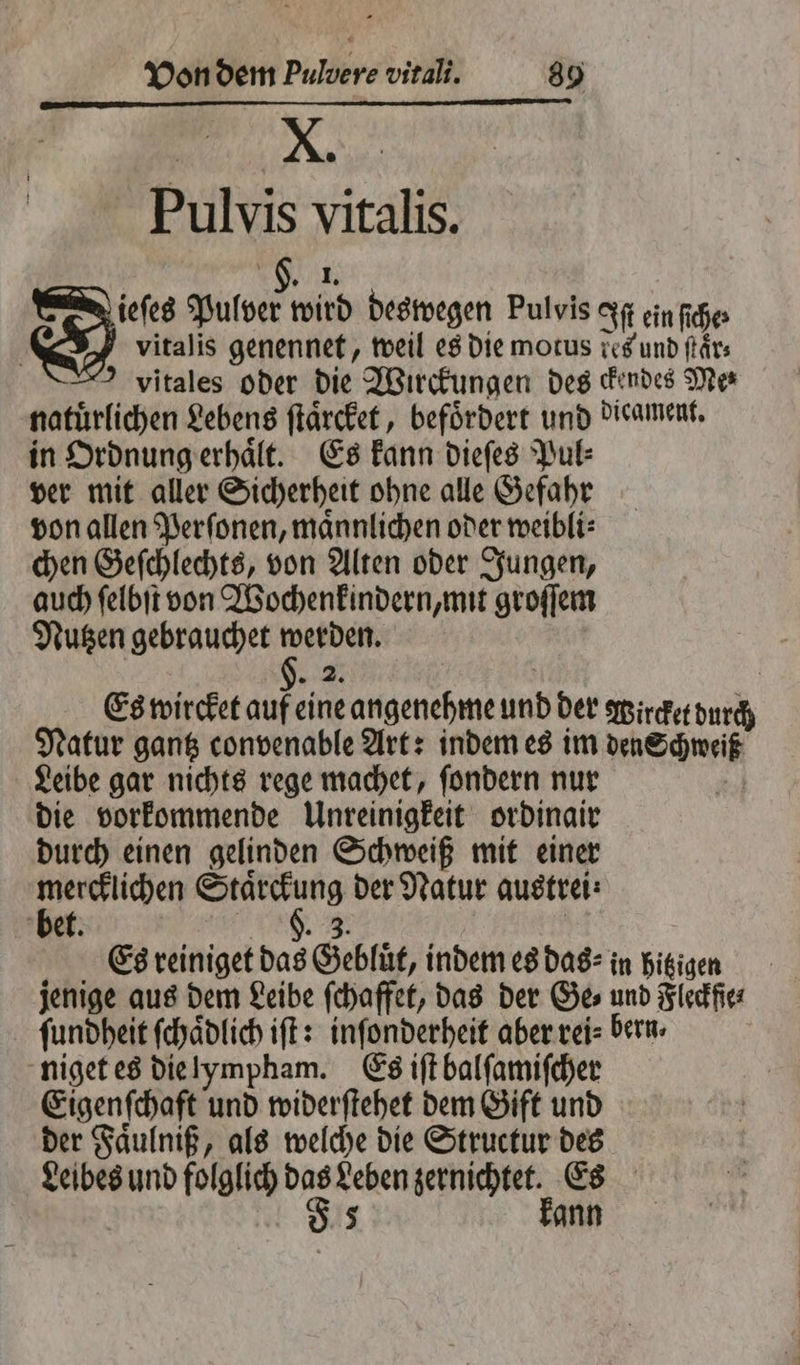 Von dem Pulvere vitali. 89
X.
Pulvis vitalis.
§. 1.
Dieſes Pulver wird deswegen Pulvis
vitalis genennet, weil es die motus
vitales oder die Wirckungen des
natuͤrlichen Lebens ſtaͤrcket, befoͤrdert und
in Ordnung erhaͤlt. Es kann dieſes Pul⸗
ver mit aller Sicherheit ohne alle Gefahr
von allen Perſonen, maͤnnlichen oder weibli⸗
chen Geſchlechts, von Alten oder Jungen,
auch ſelbſt von Wochenkindern, mit groſſem
Nutzen gebrauchet werden.
Iſt ein ſiche⸗
res und ſtaͤr⸗
ckendes Me⸗
dicament.
§. 2.
Es wircket auf eine angenehme und der
Natur gantz convenable Art: indem es im
Leibe gar nichts rege machet, ſondern nur
die vorkommende Unreinigkeit ordinair
durch einen gelinden Schweiß mit einer
mercklichen Staͤrckung der Natur austrei⸗
bet.
Wircket durch
den Schweiß
§. 3.
Es reiniget das Gebluͤt, indem es das⸗
jenige aus dem Leibe ſchaffet, das der Ge⸗
ſundheit ſchaͤdlich iſt: inſonderheit aber rei⸗
niget es die lympham. Es iſt balſamiſcher
Eigenſchaft und widerſtehet dem Gift und
der Faͤulniß, als welche die Structur des
Leibes und folglich das Leben zernichtet. Es
in hitzigen
und Fleckfie⸗
bern.
F 5 kann